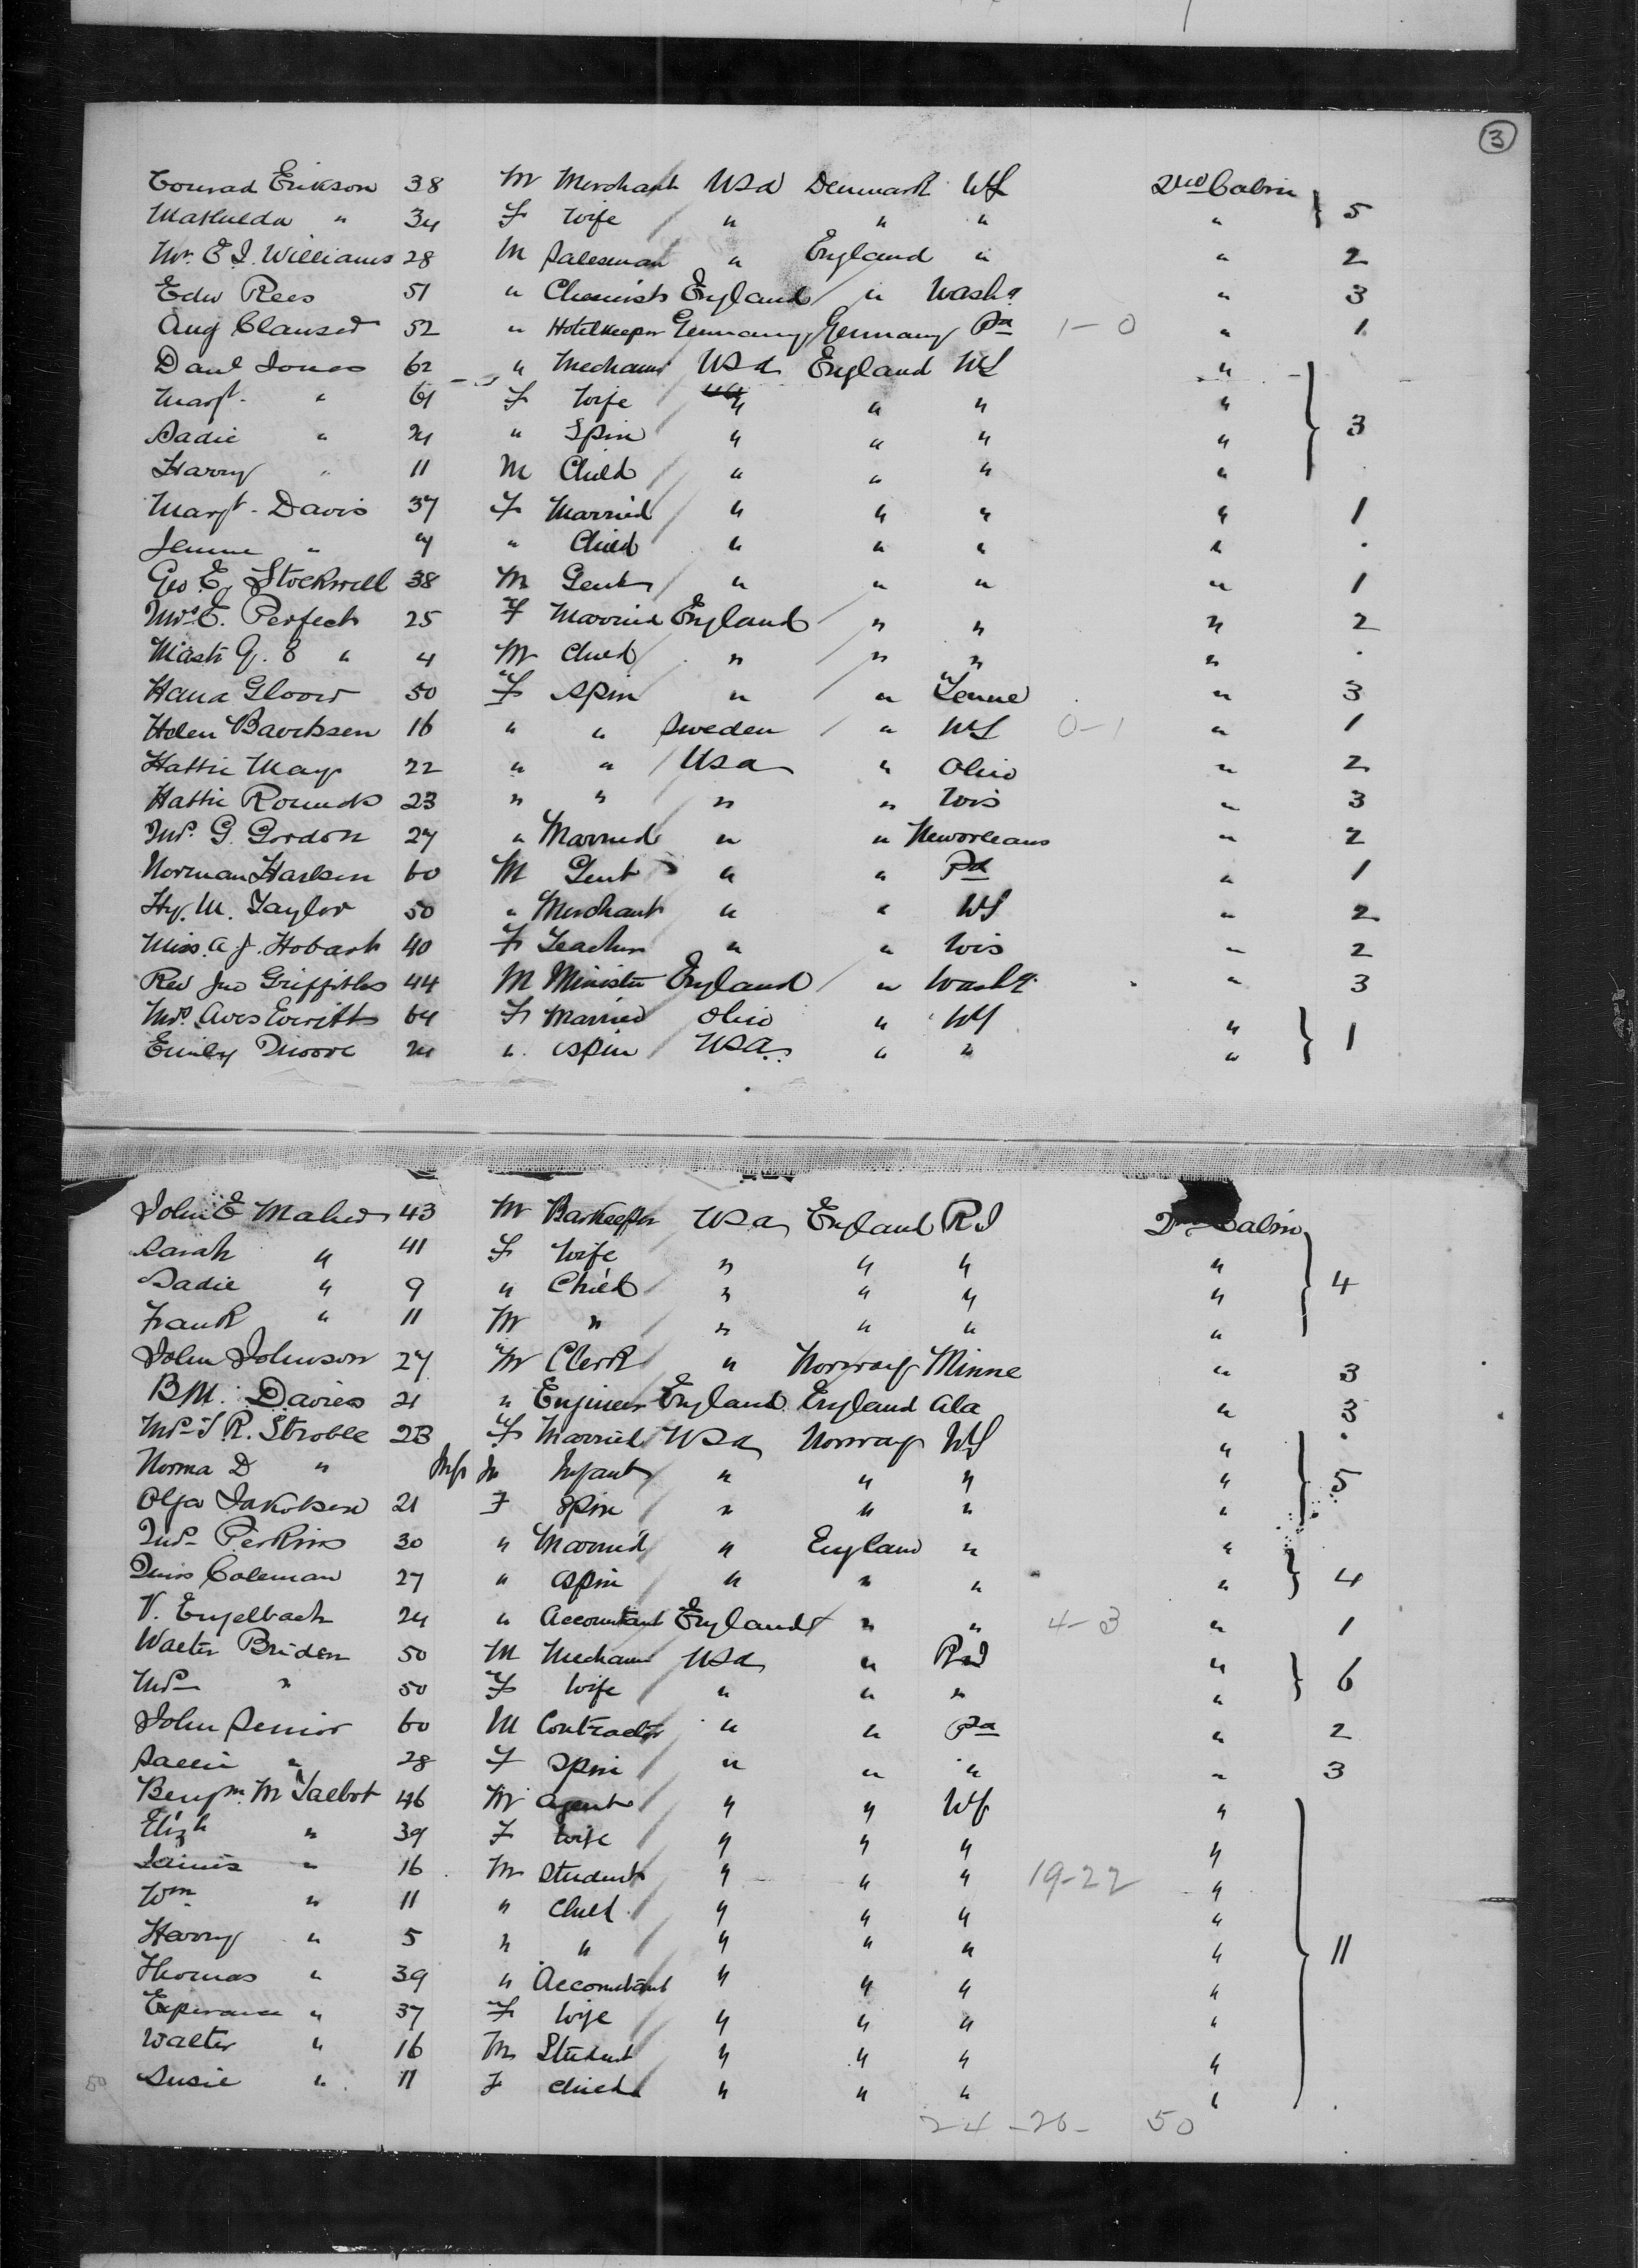 3
Conrad Erikson 38 M Merchant USA Denmark NY 2nd Cabin
Mathulda " 34 F Wife " " " " 5
Mr. E. J. Williams 28 M Salesman " England " " 2
Edw Rees 51 " Chemist England " Washn " 3
Aug 52 " Hotelkeeper Germany Germany Pa 1-0 " 1
Danl Jones 62 " Mechanic USA England NY "
Margt. " 61 F Wife " " " "
Sadie " 24 " Spin " " " " 3
Harry " 11 M Child " " " "
Margt. Davis 37 F Married " " " " 1
Jennie " 7 " Child " " " "
Geo. E. Stockwell 38 M Gent " " " " 1
Mrs. E. Perfect 25 F Married England " " " 2
Mastr G. " 4 M Child " " " "
Hana 50 F Spin " " Tenne " 3
Helen 16 " " Sweden " NY 0-1 " 1
Hattie May 22 " " USA " Ohio " 2
Hattie Rounds 23 " " " " Wis " 3
Mrs. G. Gordon 27 " Married " " Neworleans " 2
Norman 60 M Gent " " Pa " 1
Hy. M. Taylor 50 " Merchant " " NY " 2
Miss. A. J. Hobart 40 F Teacher " " Wis " 2
Rev Jno Griffiths 44 M Minister England " Washn. " 3
Mrs. Aves Everitt 64 F Married Ohio " NY "
Emily Moore 24 " Spin USA. " " " 1
John E Maher 43 M Barkeeper USA England RI 2nd Cabin
Sarah " 41 F Wife " " " "
Sadie " 9 " Child " " " " 4
Frank " 11 M " " " " "
John Johnson 27 M Clerk " Norway Minne " 3
B M. Davies 21 " Engineer England England Ala " 3
Mrs J R. Stroble 23 F Married USA Norway NY "
Norma D " Inf Infant " " " " 5
Olga Jakobsen 21 F Spin " " " "
Mrs. Perkins 30 " Married " England " "
Miss Coleman 27 " Spin " " " " 4
V. Engelbach 24 " Accountant England " " 4-3 " 1
Walter Briden 50 M Mechanic USA " RI "
Mrs " 50 F Wife " " " " 6
John Senior 60 M Contractor " " Pa " 2
Sallie " 28 F Spin " " " " 3
Benjm. M Talbot 46 M Agent " " NY "
Elizh " 39 F Wife " " " "
James " 16 M Student " " " 19-22 "
Wm " 11 " Child " " " "
Harry " 5 " " " " " " 11
Thomas " 39 " Accountant " " " "
Esperance " 37 F Wife " " " "
Walter " 16 M Student " " " "
50 Susie " 11 F Child " " " "
24-26- 50